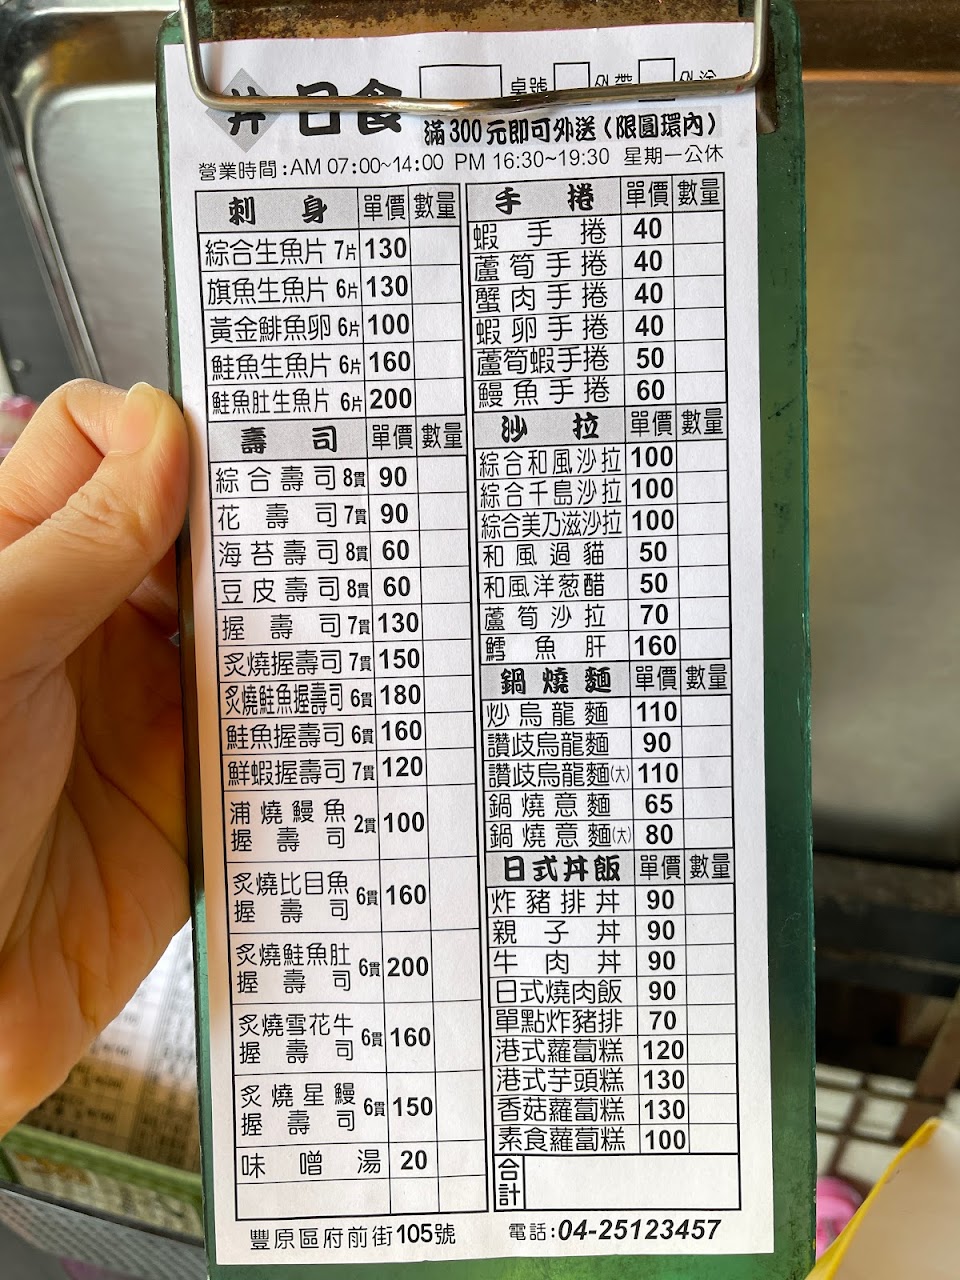 井 日食
桌號 外帶 外送
滿300元即可外送(限圓環內)
營業時間:AM 07:00~14:00 PM 16:30~19:30 星期一公休
刺身 單價 數量
綜合生魚片 7片 130
旗魚生魚片 6片 130
黃金鯡魚卵 6片 100
鮭魚生魚片 6片 160
鮭魚肚生魚片 6片 200
壽司 單價 數量
綜合壽司 8貫 90
花壽司 7貫 90
海苔壽司 8貫 60
豆皮壽司 8貫 60
握壽司 7貫 130
炙燒握壽司 7貫 150
炙燒鮭魚握壽司 6貫 180
鮭魚握壽司 6貫 160
鮮蝦握壽司 7貫 120
浦燒鰻魚
握壽司 2貫 100
炙燒比目魚
握壽司 6貫 160
炙燒鮭魚肚
握壽司 6貫 200
炙燒雪花牛
握壽司 6貫 160
炙燒星鰻
握壽司 6貫 150
味噌湯 20
手捲 單價 數量
蝦手捲 40
蘆筍手捲 40
蟹肉手捲 40
蝦卵手捲 40
蘆筍蝦手捲 50
鰻魚手捲 60
沙拉 單價 數量
綜合和風沙拉 100
綜合千島沙拉 100
綜合美乃滋沙拉 100
和風過貓 50
和風洋葱醋 50
蘆筍沙拉 70
鱈魚肝 160
鍋燒麵 單價 數量
炒烏龍麵 110
讚歧烏龍麵 90
讚歧烏龍麵(大) 110
鍋燒意麵 65
鍋燒意麵(大) 80
日式丼飯 單價 數量
炸豬排丼 90
親子丼 90
牛肉丼 90
日式燒肉飯 90
單點炸豬排 70
港式蘿蔔糕 120
港式芋頭糕 130
香菇蘿蔔糕 130
素食蘿蔔糕 100
合計
豐原區府前街105號 電話:04-25123457